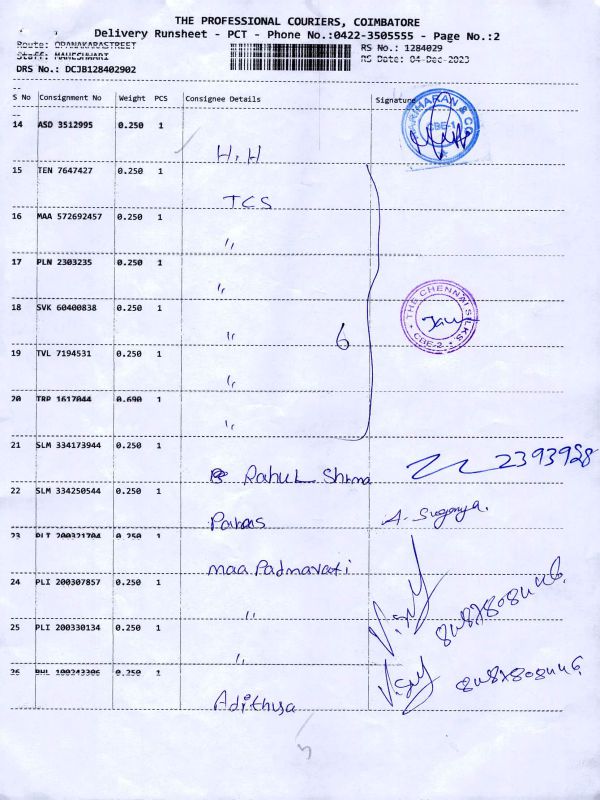 THE PROFESSIONAL COURIERS, COIMBATORE
Delivery Runsheet - PCT - Phone No.:0422-3505555 - Page No.:2
Route: OPANAKARASTREET RS No.: 1284029
Staff: MAHESHWARI RS Date: 04-Dec-2023
DRS No.: DCJB128402902
S No Consignment No Weight PCS Consignee Details Signature
14 ASD 3512995 0.250 1
HARIHARAN & CO
CBE-1
H.H
15 TEN 7647427 0.250 1
TCS
16 MAA 572692457 0.250 1
"
17 PLN 2303235 0.250 1
"
THE CHENNAI SILKS
CBE-2
18 SVK 60400838 0.250 1
" 6
19 TVL 7194531 0.250 1
"
20 TRP 1617044 0.690 1
"
21 SLM 334173944 0.250 1
Rahul Shrma 2393928
22 SLM 334250544 0.250 1
Paras A. Suganya.
23 PLI 200321704 0.250 1
maa Padmavati
24 PLI 200307857 0.250 1
"
25 PLI 200330134 0.250 1
"
26 BHL 100243306 0.250 1
Adithya